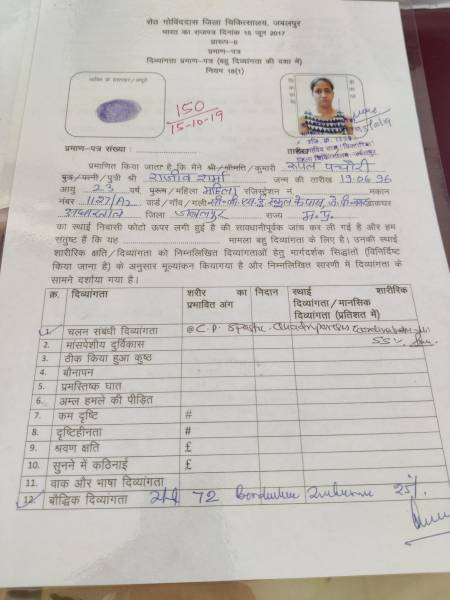 सेठ गोविंददास जिला चिकित्सालय, जबलपुर
भारत का राजपत्र दिनांक 15 जून 2017
प्रारूप-6
प्रमाण-पत्र
दिव्यांगता प्रमाण-पत्र (बहु दिव्यांगता की दशा में)
नियम 18(1)
150
15-10-19
प्रमाण-पत्र संख्या :
तारीख
प्रमाणित किया जाता है कि मैने श्री/श्रीमति/कुमारी रूपल पचौरी
पुत्र/पत्नी/पुत्री श्री राजीव शर्मा जन्म की तारीख 19.06.96
आयु 23 वर्ष, पुरूष/महिला महिला रजिस्ट्रेशन नं. मकान
नंबर 1127/A2 वार्ड/गांव/गली स्कूल के पास डाकघर
आधारताल जिला जबलपुर राज्य म.प्र.
का स्थाई निवासी फोटो ऊपर लगी हुई है की सावधानीपूर्वक जांच कर ली गई है और हम
संतुष्ट हैं कि यह मामला बहु दिव्यांगता के लिए है। उनकी स्थाई
शारीरिक क्षति/दिव्यांगता को निम्नलिखित दिव्यांगताओं हेतु मार्गदर्शक सिद्धांतों (विनिर्दिष्ट
किया जाना है) के अनुसार मूल्यांकन कियागया है और निम्नलिखित सारणी में दिव्यांगता के
सामने दर्शाया गया है।
क्र. दिव्यांगता शरीर का प्रभावित अंग निदान स्थाई शारीरिक दिव्यांगता/मानसिक दिव्यांगता (प्रतिशत में)
1. चलन संबंधी दिव्यांगता @ C.P. Spastic Quadriparesis
2. मांसपेशीय दुर्विकास
3. ठीक किया हुआ कुष्ठ
4. बौनापन
5. प्रमस्तिष्क घात
6. अम्ल हमले की पीड़ित
7. कम दृष्टि #
8. दृष्टिहीनता #
9. श्रवण क्षति £
10. सुनने में कठिनाई £
11. वाक और भाषा दिव्यांगता
12. बौद्धिक दिव्यांगता 72 25%